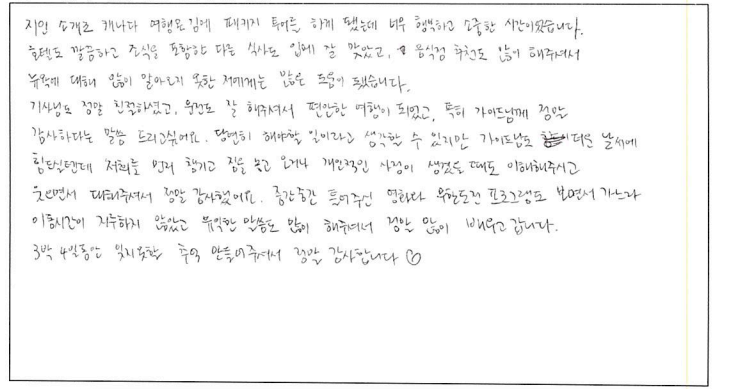 지인 소개로 캐나다 여행온김에 패키지 투어를 하게 됐는데 너무 행복하고 소중한 시간이었습니다.
호텔도 깔끔하고 조식을 포함한 다른 식사도 입에 잘 맞았고, 음식점 추천도 많이 해주셔서
뉴욕에 대해 많이 알아보지 못한 저에게는 많은 도움이 됐습니다.
기사님도 정말 친절하셨고, 운전도 잘 해주셔서 편안한 여행이 되었고, 특히 가이드님께 정말
감사하다는 말씀 드리고싶어요. 당연히 해야할 일이라고 생각할 수 있지만 가이드님도 더운 날씨에
힘드실텐데 저희를 먼저 챙기고 짐을 놓고 오거나 개인적인 사정이 생겼을 때도 이해해주시고
웃으면서 대해주셔서 정말 감사했어요. 중간중간 틀어주신 영화나 무한도전 프로그램도 보면서 가느라
이동시간이 지루하지 않았고 유익한 말씀도 많이 해주셔서 정말 많이 배우고 갑니다.
3박 4일동안 잊지못할 추억 만들어주셔서 정말 감사합니다 ♡